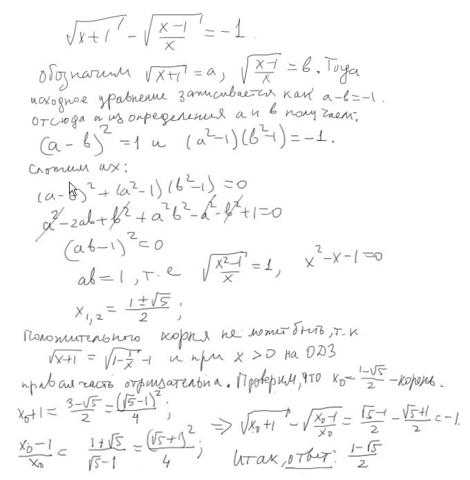 √(x+1) - √((x-1)/x) = -1
обозначим √(x+1) = a, √((x-1)/x) = b. Тогда
исходное уравнение записывается как a-b=-1.
отсюда и из определения a и b получаем:
(a-b)² = 1 и (a²-1)(b²-1) = -1.
Сложим их:
(a-b)² + (a²-1)(b²-1) = 0
a² - 2ab + b² + a²b² - a² - b² + 1 = 0
(ab-1)² = 0
ab = 1, т.е √((x²-1)/x) = 1, x² - x - 1 = 0
x₁,₂ = (1±√5)/2 ;
Положительного корня не может быть, т.к
√(x+1) = √(1-1/x) - 1 и при x > 0 на ОДЗ
правая часть отрицательна. Проверим, что x₀ = (1-√5)/2 - корень.
x₀+1 = (3-√5)/2 = (√5-1)²/4 ;
(x₀-1)/x₀ = (1+√5)/(√5-1) = (√5+1)²/4 ;
⇒ √(x₀+1) - √((x₀-1)/x₀) = (√5-1)/2 - (√5+1)/2 = -1.
Итак, ответ: (1-√5)/2